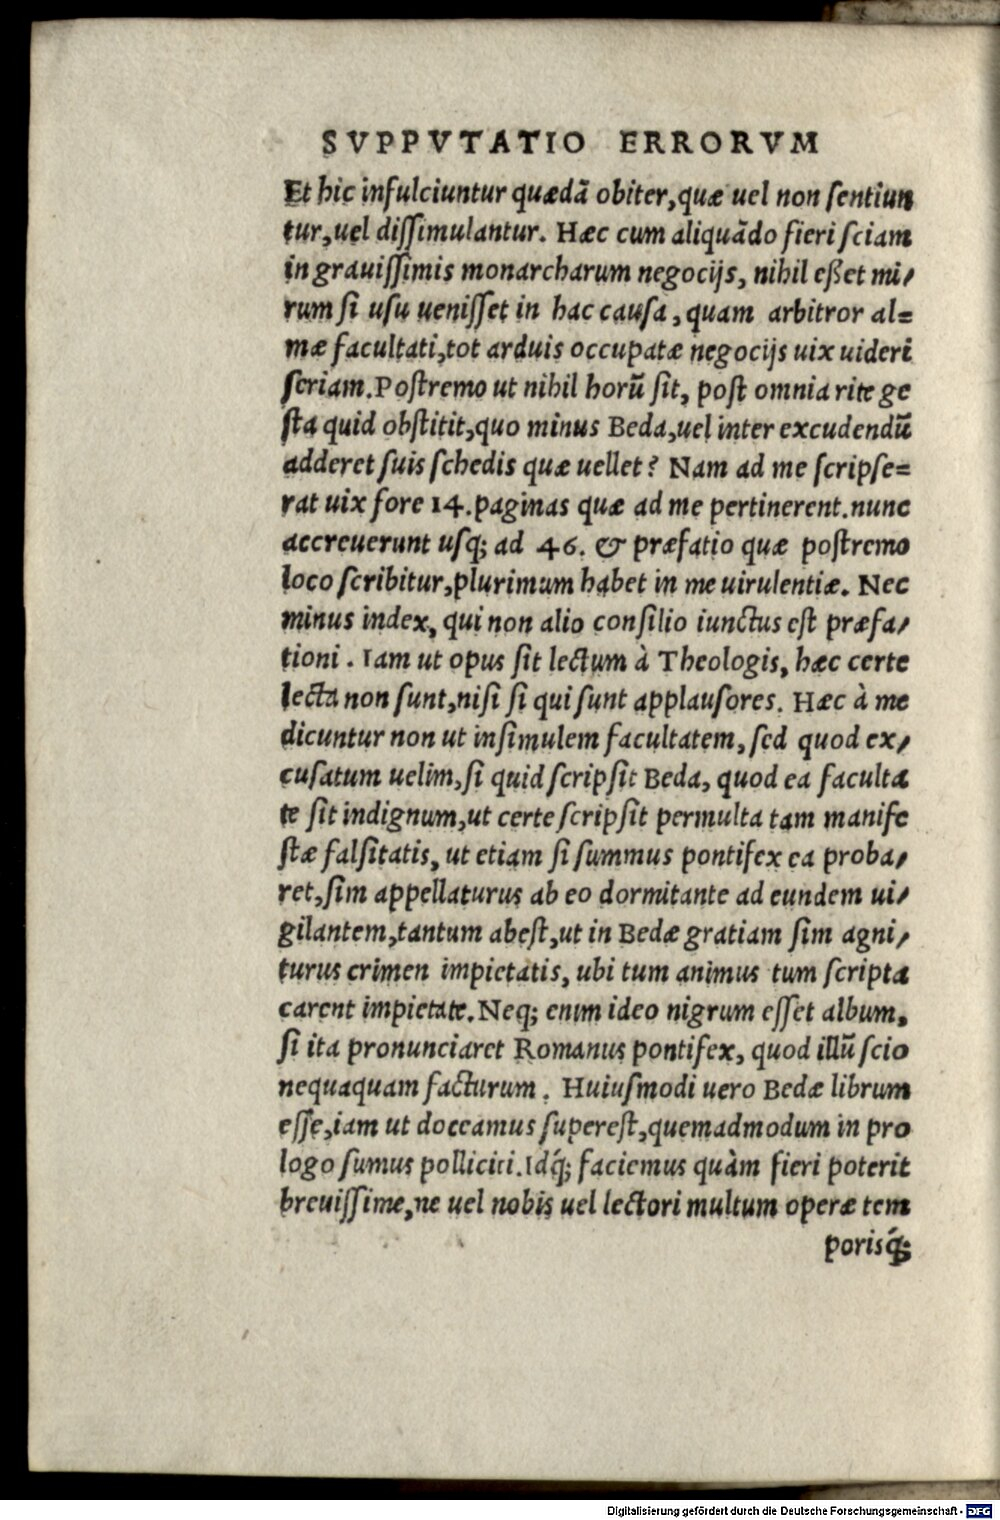 SVPPVTATIO ERRORVM
Et hic infulciuntur quædã obiter, quæ uel non sentiun
tur, uel dissimulantur. Hæc cum aliquãdo fieri sciam
in grauissimis monarcharum negocijs, nihil eßet mi/
rum si usu uenisset in hac causa, quam arbitror al=
mæ facultati, tot arduis occupatæ negocijs uix uideri
seriam. Postremo ut nihil horũ sit, post omnia rite ge
sta quid obstitit, quo minus Beda, uel inter excudendũ
adderet suis schedis quæ uellet? Nam ad me scripse=
rat uix fore 14. paginas quæ ad me pertinerent. nunc
accreuerunt usq; ad 46. & præfatio quæ postremo
loco scribitur, plurimum habet in me uirulentiæ. Nec
minus index, qui non alio consilio iunctus est præfa/
tioni. Iam ut opus sit lectum à Theologis, hæc certe
lecta non sunt, nisi si qui sunt applausores. Hæc à me
dicuntur non ut insimulem facultatem, sed quod ex/
cusatum uelim, si quid scripsit Beda, quod ea faculta
te sit indignum, ut certe scripsit permulta tam manife
stæ falsitatis, ut etiam si summus pontifex ea proba/
ret, sim appellaturus ab eo dormitante ad eundem ui/
gilantem, tantum abest, ut in Bedæ gratiam sim agni/
turus crimen impietatis, ubi tum animus tum scripta
carent impietate. Neq; enim ideo nigrum esset album,
si ita pronunciaret Romanus pontifex, quod illũ scio
nequaquam facturum. Huiusmodi uero Bedæ librum
esse, iam ut doceamus superest, quemadmodum in pro
logo sumus polliciti. Idq́; faciemus quàm fieri poterit
breuissime, ne uel nobis uel lectori multum operæ tem
porisq́;
Digitalisierung gefördert durch die Deutsche Forschungsgemeinschaft - DFG